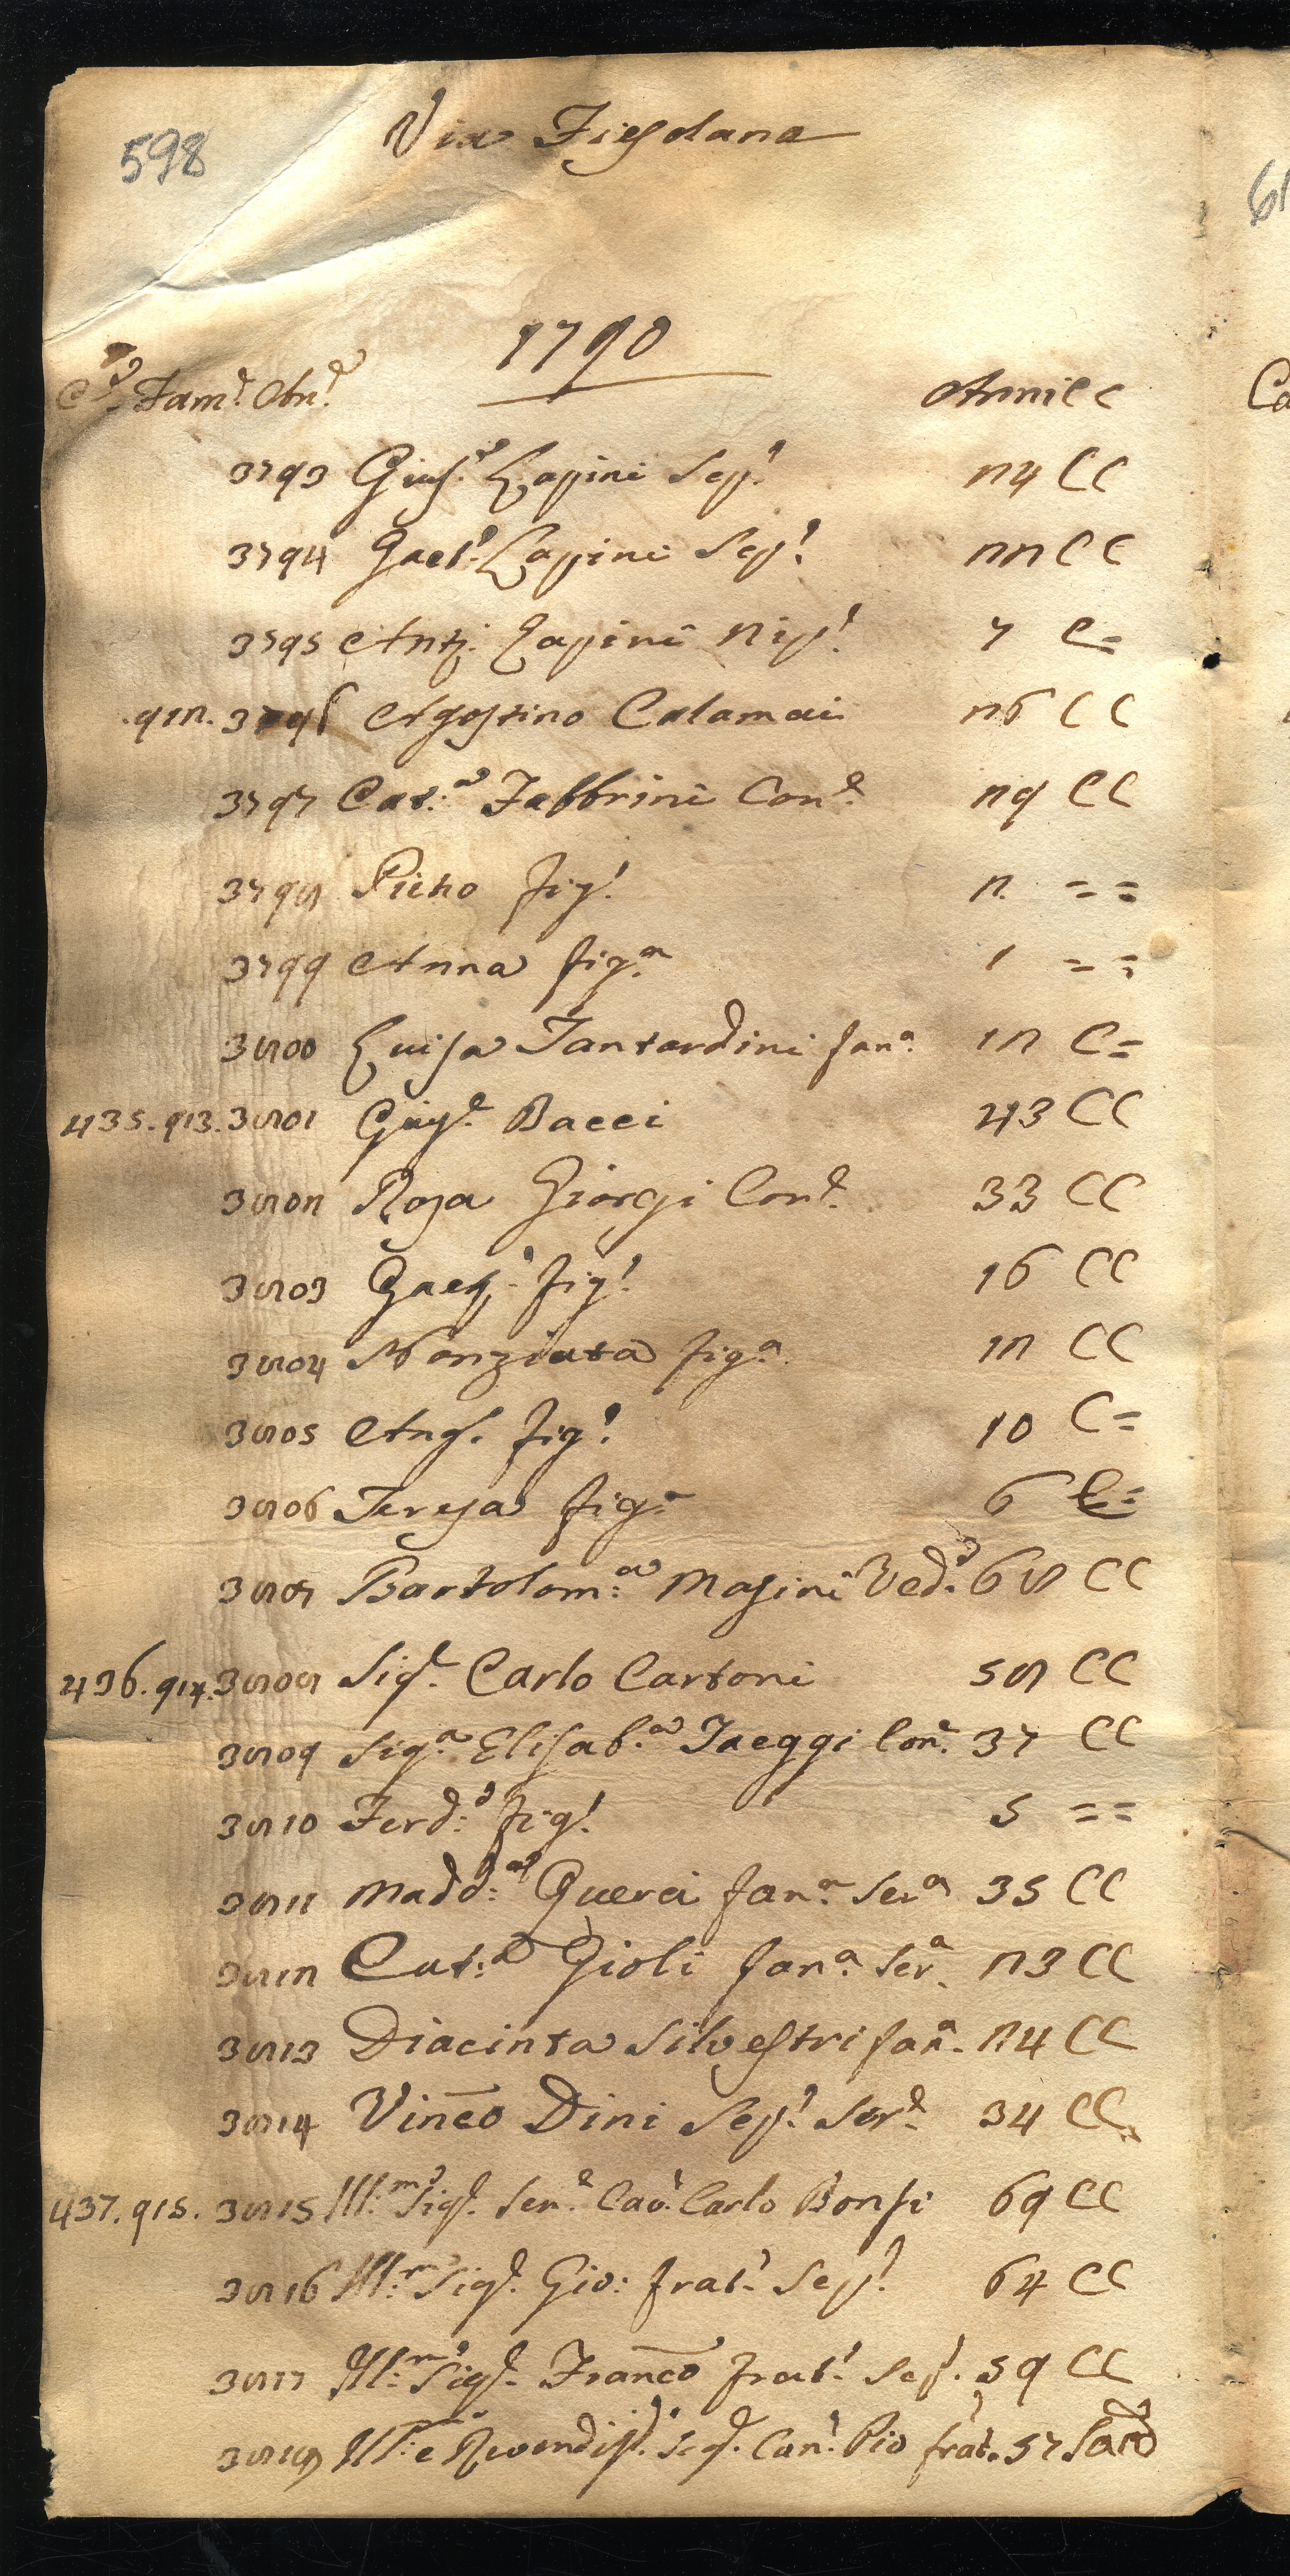 598
Via Fiesolana
61
1790
Ce. Fame. Ane. Anni CC
Ca
3793 Giuse. Lapini Sepe. 24 CC
3794 Gaete. Lapini Sepe. 22 CC
3795 Anto. Lapini Nipe. 7 C=
912. 3796 Agostino Calamai 26 CC
3797 Cat:a Fabbrini Cone. 29 CC
3798 Pietro fige. 2 ==
3799 Anna figa. 1 ==
3800 Luisa Tantardini fana. 12 C=
435. 913. 3801 Giuse. Bacci 43 CC
3802 Rosa Giorgi Cone. 33 CC
3803 Gaeto. fige. 16 CC
3804 Nonziata figa. 12 CC
3805 Ang. fige. 10 C=
3806 Teresa figa. 6 C=
3807 Bartolom:a Masini Veda. 68 CC
436. 914. 3808 Sige. Carlo Cartoni 58 CC
3809 Siga. Elisab.a Jaeggi Cone. 37 CC
3810 Ferdo. fige. 5 ==
3811 Madd:a Querci fana. Sera 35 CC
3812 Cat:a Gioli fana. Sera. 23 CC
3813 Diacinta Silvestri fana. 24 CC
3814 Vinco Dini Sepe. Sere. 34 CC
437. 915. 3815 Ill:mo Sige. Sene. Cave. Carlo Bonsi 69 CC
3816 Ill:mo Sige. Gio: frate. Sepe. 64 CC
3817 Ill:mo Sige. Franco frate. Sep. 59 CC
3818 Ill:e Revendiss. Sige. Cane. Pio frat. 57 Sacd